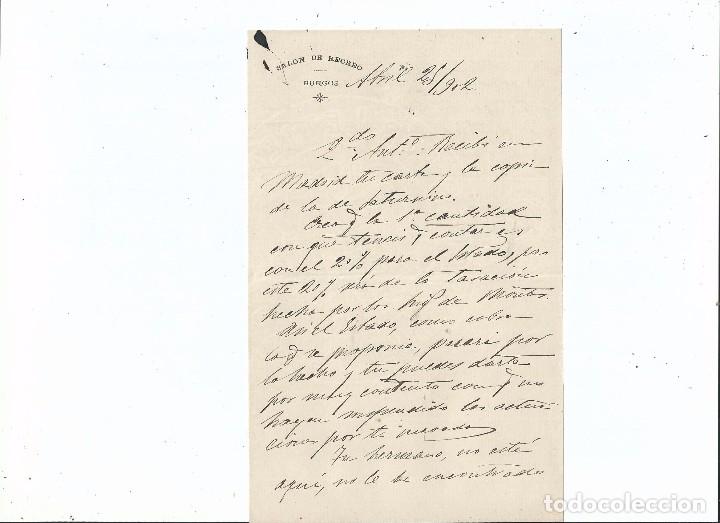 SALON DE RECREO
BURGOS
Abril 25/902
Qdo Anto: Recibí en
Madrid tu carta y la copia
de la de Saturnino.
Creo q la 1ª cantidad
con que teneis q contar es
con el 20% para el Estado, pero
este 20% será de la tasación
hecha por los Ings de Montes.
Así el Estado, como cobre
lo q se propone, pasará por
lo hecho y tu puedes darte
por muy contento con q no
hayan suspendido las actua-
ciones por ti
Tu hermano, no está
aquí, no le he encontrado
todocoleccion.net